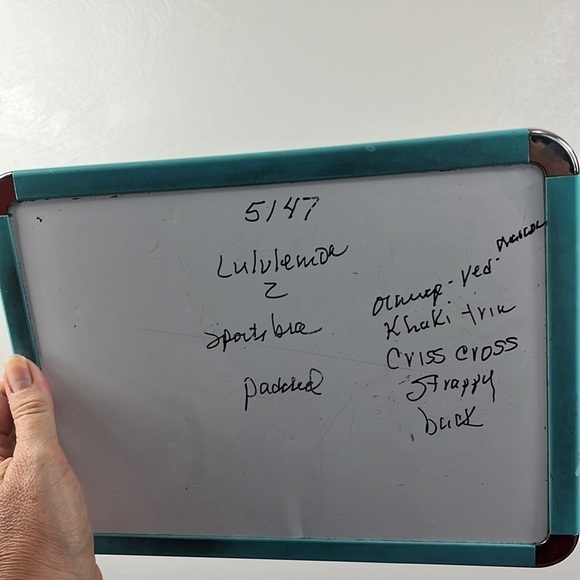 5147
Lululemon
2
Sports bra
padded
orange-red
Khaki trim
criss cross
strappy
back